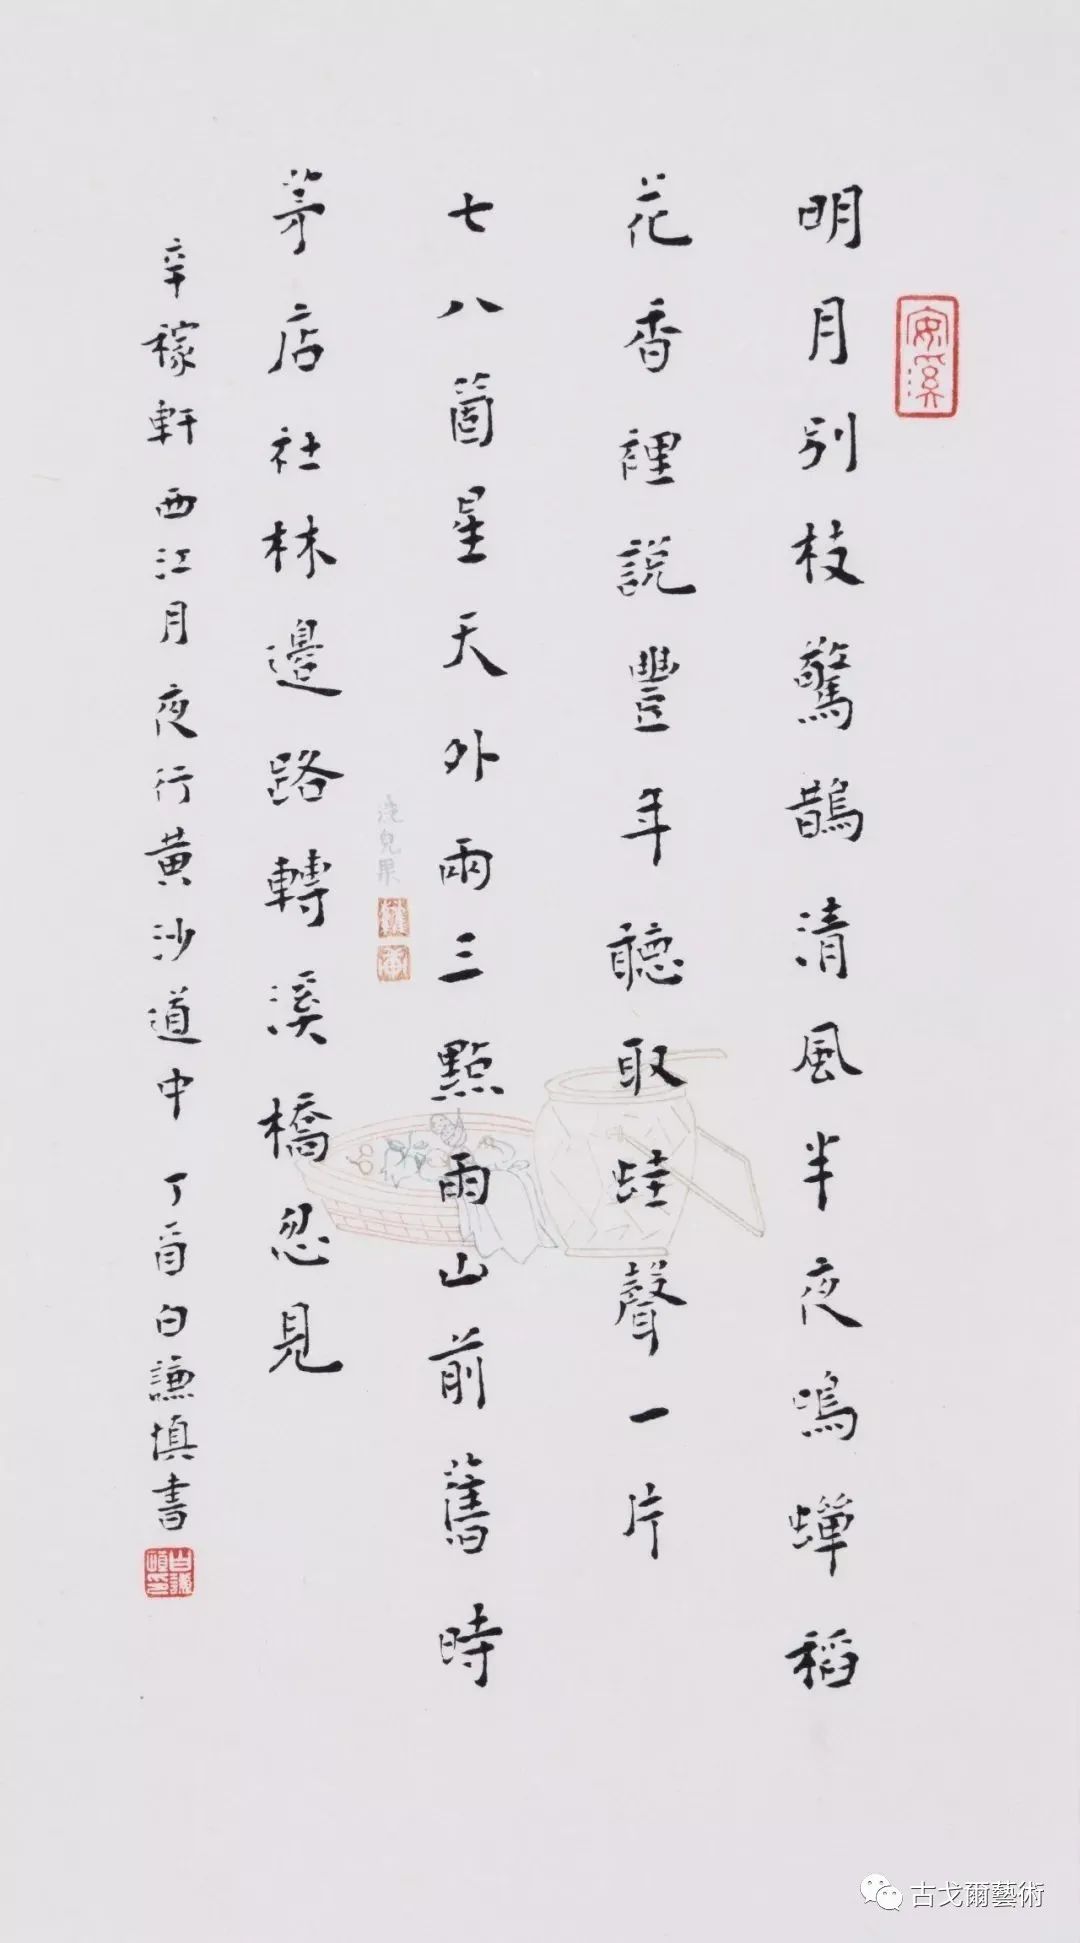 安溪
明月別枝驚鵲清風半夜鳴蟬稻
花香裡說豐年聽取蛙聲一片
七八箇星天外兩三點雨山前舊時
茅店社林邊路轉溪橋忽見
辛稼軒西江月夜行黃沙道中 丁酉白謙慎書
白謙慎印
古戈爾藝術